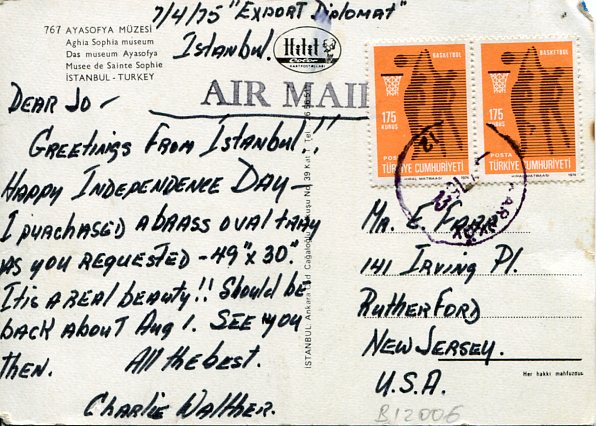 7/4/75 "Export Diplomat"
Istanbul.
767 AYASOFYA MÜZESİ
Aghia Sophia museum
Das museum Ayasofya
Musee de Sainte Sophie
İSTANBUL - TURKEY
Hitit
Color
KARTPOSTALLARI
AIR MAIL
DEAR JO -
GREETINGS FROM ISTANBUL!!
HAPPY INDEPENDENCE DAY -
I PURCHASED A BRASS OVAL TRAY
AS YOU REQUESTED - 49" X 30".
IT IS A REAL BEAUTY!! SHOULD BE
BACK ABOUT AUG 1. SEE YOU
THEN. All the best.
Charlie Walther.
İSTANBUL: Ankara Cad. Cağaloğlu Yokuşu No. 39 Kat
BASKETBOL
175
KURUŞ
POSTA
TÜRKİYE CUMHURİYETİ
1974
BASKETBOL
175
KURUŞ
POSTA
TÜRKİYE CUMHURİYETİ
1974
MR. E.
141 Irving Pl.
RUTHERFORD
NEW JERSEY.
U.S.A.
Her hakkı mahfuzdur.
B12006